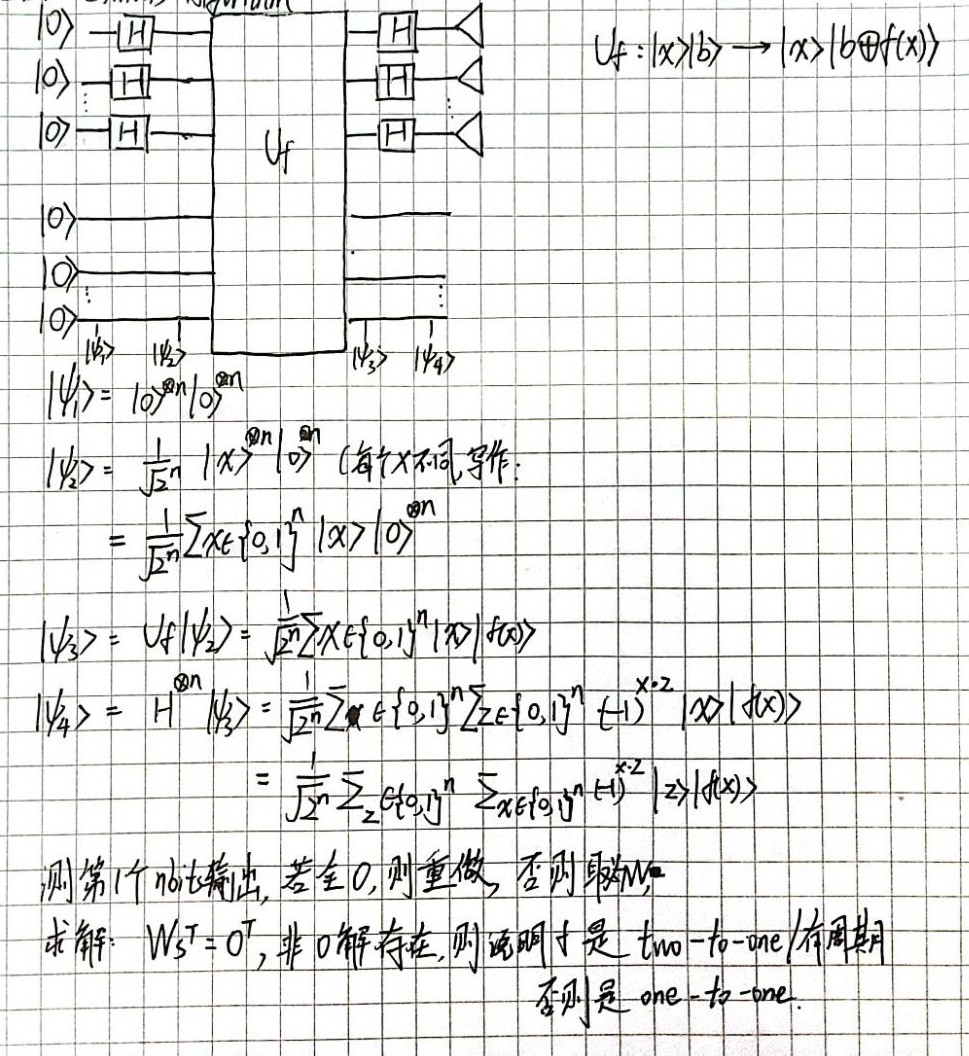 Simon's Algorithm
|0⟩ H H
|0⟩ H H
|0⟩ H H
U_f : |x⟩|b⟩ → |x⟩|b⊕f(x)⟩
U_f
|0⟩
|0⟩
|0⟩
|ψ₁⟩ |ψ₂⟩ |ψ₃⟩ |ψ₄⟩
|ψ₁⟩ = |0⟩^⊗n |0⟩^⊗n
|ψ₂⟩ = 1/√2ⁿ |x⟩^⊗n |0⟩^⊗n (每个x不同,写作:
= 1/√2ⁿ Σx∈{0,1}ⁿ |x⟩|0⟩^⊗n
|ψ₃⟩ = U_f|ψ₂⟩ = 1/√2ⁿ Σx∈{0,1}ⁿ |x⟩|f(x)⟩
|ψ₄⟩ = H^⊗n |ψ₃⟩ = 1/√2ⁿ Σx∈{0,1}ⁿ Σz∈{0,1}ⁿ (-1)^x·z |x⟩|f(x)⟩
= 1/√2ⁿ Σz∈{0,1}ⁿ Σx∈{0,1}ⁿ (-1)^x·z |z⟩|f(x)⟩
测第1个nbit输出,若全0,则重做,否则
求解: Ws^T = 0^T, 非0解存在,则说明f是 two-to-one/有周期
否则是 one-to-one.